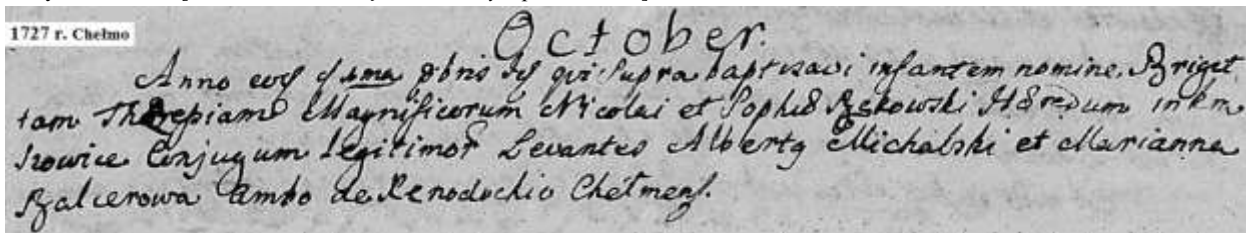 1727 r. Chełmo
October.
Anno eod qui supra baptisavi infantem nomine Brigit
tam Magnificorum Nicolai et Sophiæ Hæredum in
Conjugum Legitimor Levantes Albertq Michalski et Marianna
Balcerowa ambo de Xenodochio Chełmens.